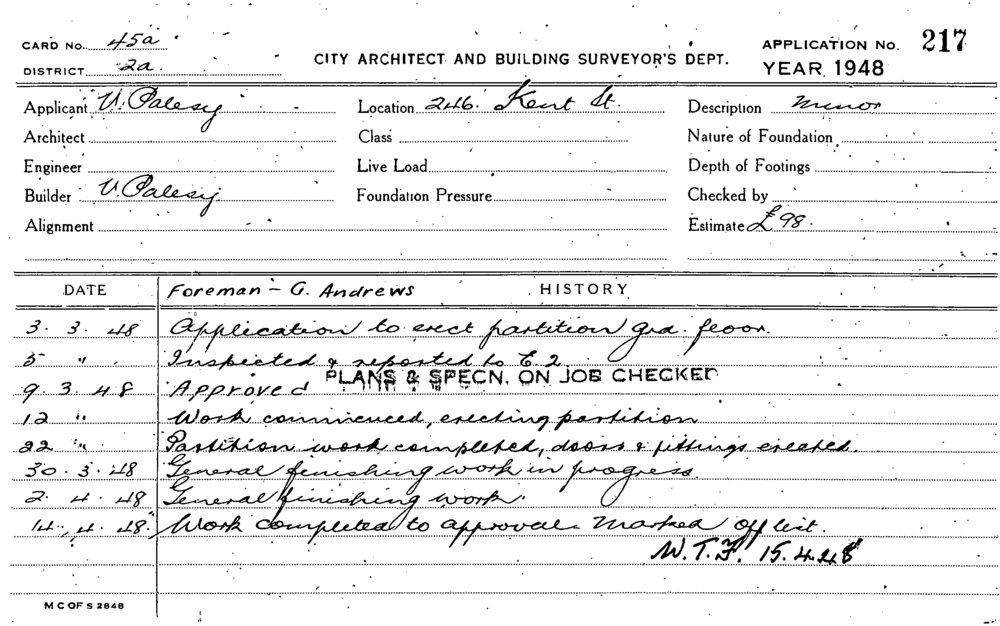 CARD No. 45a
DISTRICT 2a.
CITY ARCHITECT AND BUILDING SURVEYOR'S DEPT.
APPLICATION No. 217
YEAR 1948
Applicant V. Palesy Location 246. Kent St. Description Minor
Architect Class Nature of Foundation
Engineer Live Load Depth of Footings
Builder V. Palesy Foundation Pressure Checked by
Alignment Estimate £98.
DATE Foreman - G. Andrews HISTORY
3. 3. 48 Application to erect partition grd. floor.
5 " Inspected & reported to E.2
PLANS & SPECN. ON JOB CHECKED
9. 3. 48 Approved
12 " Work commenced, erecting partition
22 " Partition work completed, doors & fittings erected.
30. 3. 48 General finishing work in progress.
2. 4. 48 General finishing work.
14. 4. 48. Work completed to approval. Marked off list.
W.T.F. 15.4.48
M C OF S 2848